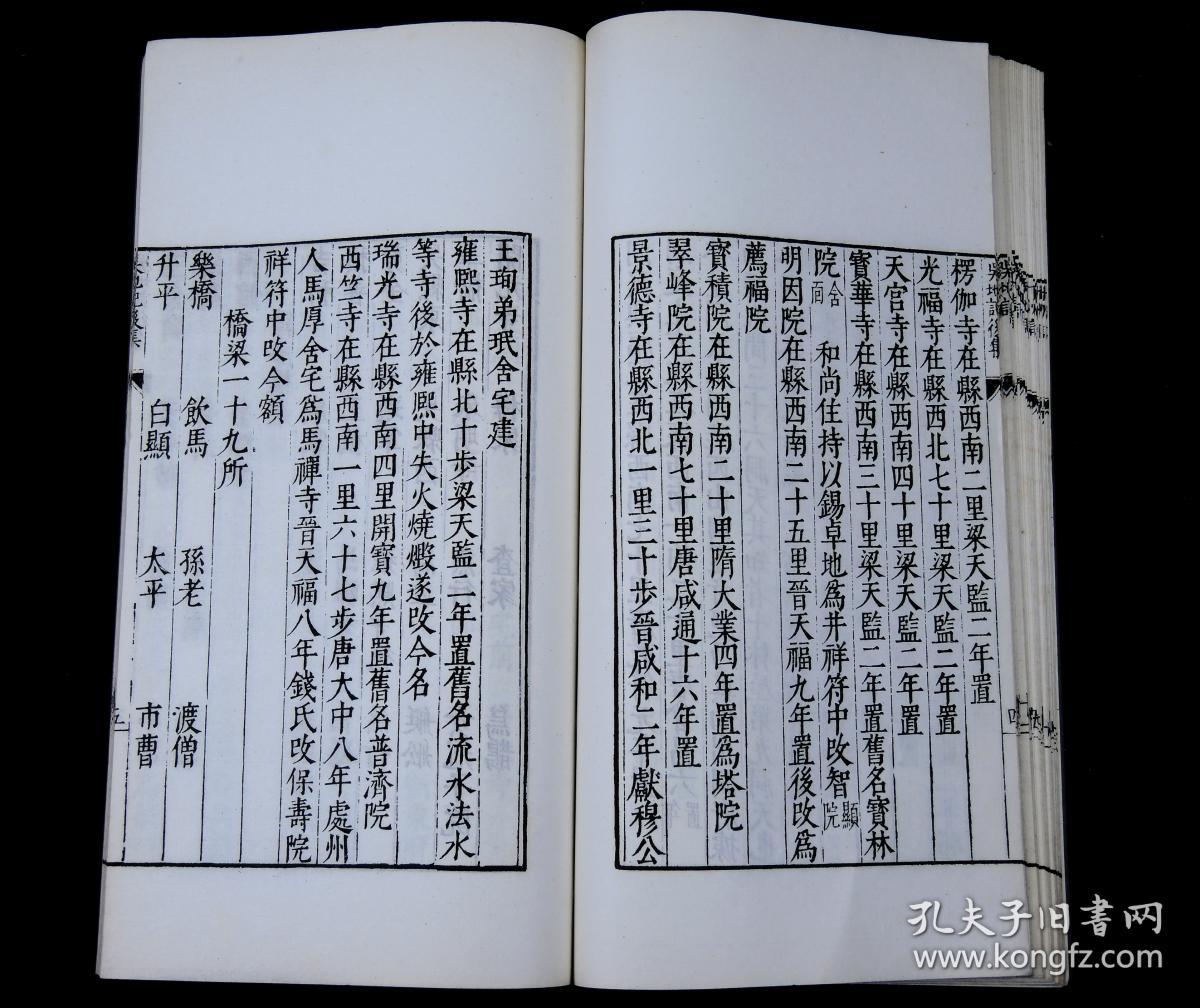 吳地記後集
四
楞伽寺在縣西南二里梁天監二年置
光福寺在縣西北七十里梁天監二年置
天官寺在縣西南四十里梁天監二年置
寶華寺在縣西南三十里梁天監二年置舊名寶林
院 和尚住持以錫卓地爲井祥符中改智顯院
明因院在縣西南二十五里晉天福九年置後改爲
薦福院
寶積院在縣西南二十里隋大業四年置爲塔院
翠峰院在縣西南七十里唐咸通十六年置
景德寺在縣西北一里三十步晉咸和二年獻穆公
王珣弟珉舍宅建
雍熙寺在縣北十步梁天監二年置舊名流水法水
等寺後於雍熙中失火燒燬遂改今名
瑞光寺在縣西南四里開寶九年置舊名普濟院
西竺寺在縣西南一里六十七步唐大中八年處州
人馬厚舍宅爲馬禪寺晉天福八年錢氏改保壽院
祥符中改今額
橋梁一十九所
樂橋 飲馬 孫老 渡僧
升平 白顯 太平 市曹
五
孔夫子旧书网
www.kongfz.com